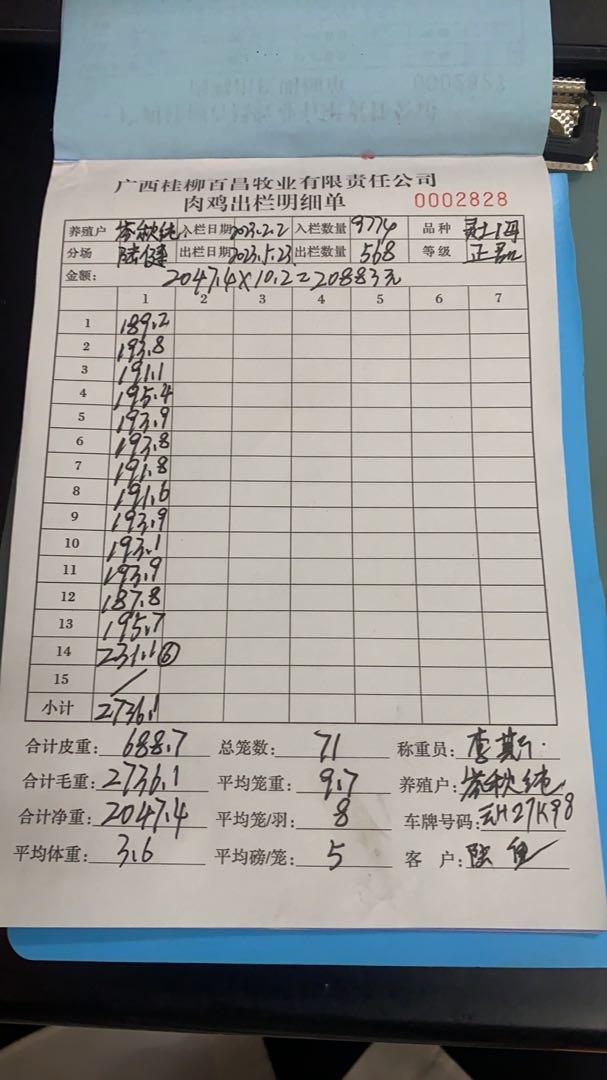 广西桂柳百昌牧业有限责任公司
肉鸡出栏明细单 0002828
养殖户 岑秋纯 入栏日期 2023.2.2 入栏数量 9774 品种
分场 陆健 出栏日期 2023.5.23 出栏数量 568 等级 正品
金额: 2047.4×10.2=20883元
1 2 3 4 5 6 7
1 189.2
2 193.8
3 191.1
4 195.4
5 193.9
6 193.8
7 191.8
8 191.6
9 193.9
10 193.1
11 193.9
12 187.8
13 195.7
14 231.1⑥
15 /
小计 2736.1
合计皮重: 688.7 总笼数: 71 称重员: 李斯
合计毛重: 2736.1 平均笼重: 9.7 养殖户: 岑秋纯
合计净重: 2047.4 平均笼/羽: 8 车牌号码: 27K98
平均体重: 3.6 平均磅/笼: 5 客 户: 陆